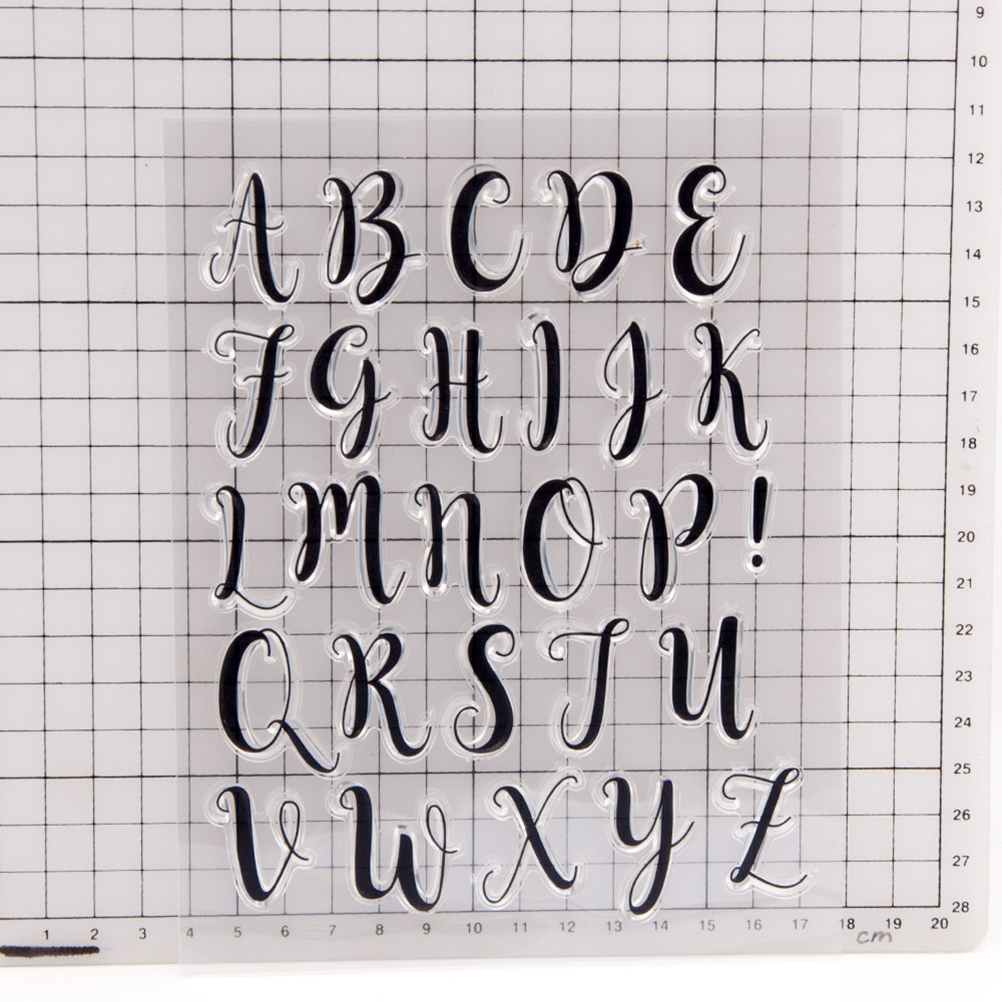 9
10
11
12
A B C D E
13
14
15
F G H I J K
16
17
18
L M N O P !
19
20
21
Q R S T U
22
23
24
25
V W X Y Z
26
27
28
1 2 3 4 5 6 7 8 9 10 11 12 13 14 15 16 17 18 19 20
cm